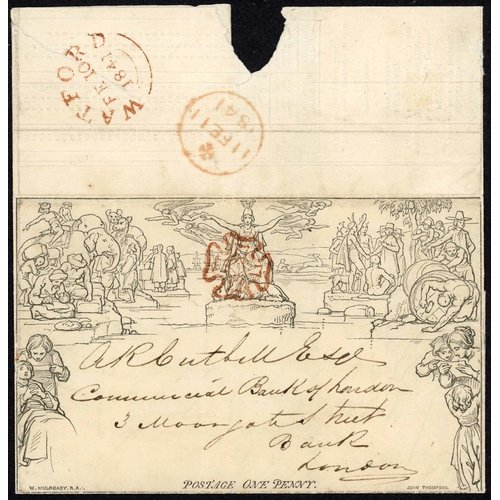 WATFORD
FE 10
1841
11 FE 11
1841
A K Cuthell Esqr
Commercial Bank of London
3 Moorgate Street
Bank
London
W. MULREADY. R.A.
POSTAGE ONE PENNY.
JOHN THOMPSON.